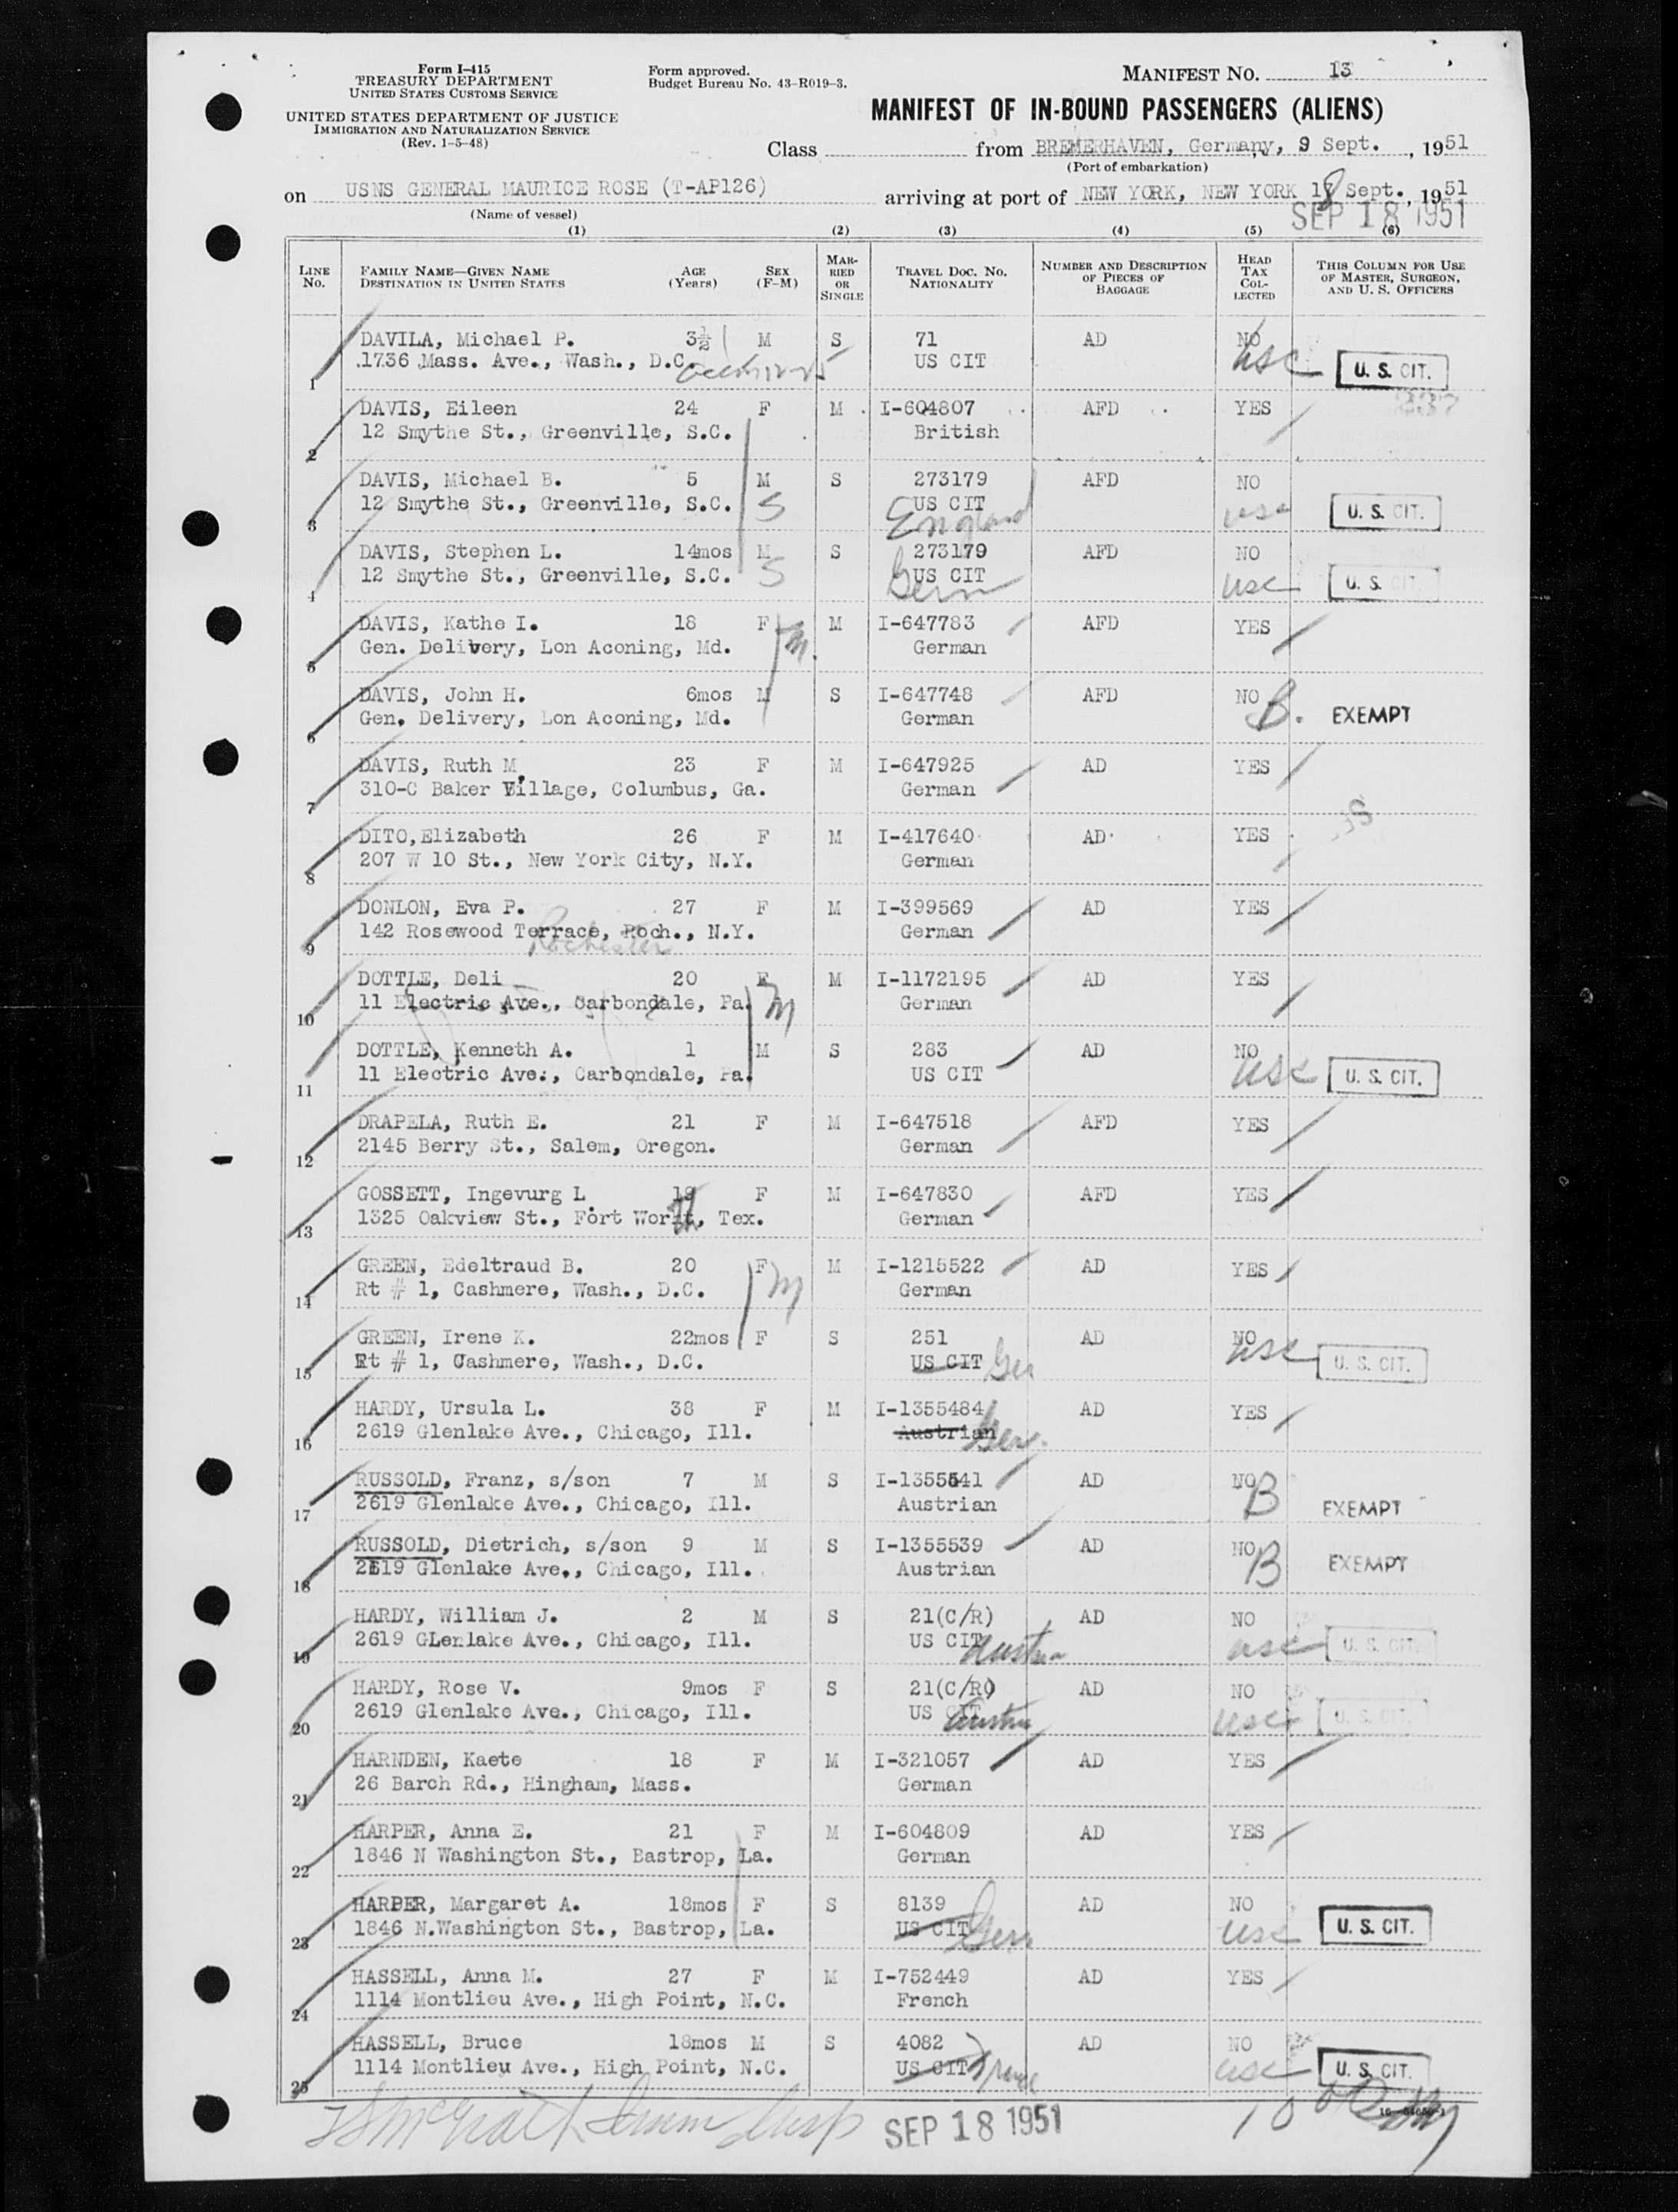 Form I-415
TREASURY DEPARTMENT
UNITED STATES CUSTOMS SERVICE
UNITED STATES DEPARTMENT OF JUSTICE
IMMIGRATION AND NATURALIZATION SERVICE
(Rev. 1-5-48)
Form approved.
Budget Bureau No. 43-R019-3.
MANIFEST NO. 13
MANIFEST OF IN-BOUND PASSENGERS (ALIENS)
Class from BREMERHAVEN, Germany, 9 Sept., 1951
(Port of embarkation)
on USNS GENERAL MAURICE ROSE (T-AP126) arriving at port of NEW YORK, NEW YORK 18 Sept., 1951
(Name of vessel)
SEP 18 1951
(1) (2) (3) (4) (5) (6)
LINE No. FAMILY NAME—GIVEN NAME DESTINATION IN UNITED STATES AGE (Years) SEX (F-M) MARRIED OR SINGLE TRAVEL DOC. NO. NATIONALITY NUMBER AND DESCRIPTION OF PIECES OF BAGGAGE HEAD TAX COLLECTED THIS COLUMN FOR USE OF MASTER, SURGEON, AND U. S. OFFICERS
DAVILA, Michael P. 3½ M S 71 AD NO
1 1736 Mass. Ave., Wash., D.C. US CIT usc U. S. CIT.
DAVIS, Eileen 24 F M I-604807 AFD YES
2 12 Smythe St., Greenville, S.C. British
DAVIS, Michael B. 5 M S 273179 AFD NO
3 12 Smythe St., Greenville, S.C. S US CIT England usc U. S. CIT.
DAVIS, Stephen L. 14mos M S 273179 AFD NO
4 12 Smythe St., Greenville, S.C. S US CIT Germ usc U. S. CIT.
DAVIS, Kathe I. 18 F M I-647783 AFD YES
5 Gen. Delivery, Lon Aconing, Md. m. German
DAVIS, John H. 6mos M S I-647748 AFD NO
6 Gen. Delivery, Lon Aconing, Md. German B. EXEMPT
DAVIS, Ruth M. 23 F M I-647925 AD YES
7 310-C Baker Village, Columbus, Ga. German
DITO,Elizabeth 26 F M I-417640 AD YES
8 207 W 10 St., New York City, N.Y. German
DONLON, Eva P. 27 F M I-399569 AD YES
9 142 Rosewood Terrace, Roch., N.Y. German
Rochester
DOTTLE, Deli 20 F M I-1172195 AD YES
10 11 Electric Ave., Carbondale, Pa. m German
DOTTLE, Kenneth A. 1 M S 283 AD NO
11 11 Electric Ave., Carbondale, Pa. US CIT usc U. S. CIT.
DRAPELA, Ruth E. 21 F M I-647518 AFD YES
12 2145 Berry St., Salem, Oregon. German
GOSSETT, Ingevurg L. 19 F M I-647830 AFD YES
13 1325 Oakview St., Fort Worth, Tex. German
GREEN, Edeltraud B. 20 F M I-1215522 AD YES
14 Rt # 1, Cashmere, Wash., D.C. m German
GREEN, Irene K. 22mos F S 251 AD NO
15 Rt # 1, Cashmere, Wash., D.C. US CIT Ger usc U. S. CIT.
HARDY, Ursula L. 38 F M I-1355484 AD YES
16 2619 Glenlake Ave., Chicago, Ill. Austrian Ger.
RUSSOLD, Franz, s/son 7 M S I-1355541 AD NO
17 2619 Glenlake Ave., Chicago, Ill. Austrian B EXEMPT
RUSSOLD, Dietrich, s/son 9 M S I-1355539 AD NO
18 2619 Glenlake Ave., Chicago, Ill. Austrian B EXEMPT
HARDY, William J. 2 M S 21(C/R) AD NO
19 2619 GLenlake Ave., Chicago, Ill. US CIT Austria usc U. S. CIT.
HARDY, Rose V. 9mos F S 21(C/R) AD NO
20 2619 Glenlake Ave., Chicago, Ill. US CIT Austria usc U. S. CIT.
HARNDEN, Kaete 18 F M I-321057 AD YES
21 26 Barch Rd., Hingham, Mass. German
HARPER, Anna E. 21 F M I-604809 AD YES
22 1846 N Washington St., Bastrop, La. German
HARPER, Margaret A. 18mos F S 8139 AD NO
23 1846 N.Washington St., Bastrop, La. US CIT Germ usc U. S. CIT.
HASSELL, Anna M. 27 F M I-752449 AD YES
24 1114 Montlieu Ave., High Point, N.C. French
HASSELL, Bruce 18mos M S 4082 AD NO
25 1114 Montlieu Ave., High Point, N.C. US CIT usc U. S. CIT.
SEP 18 1951